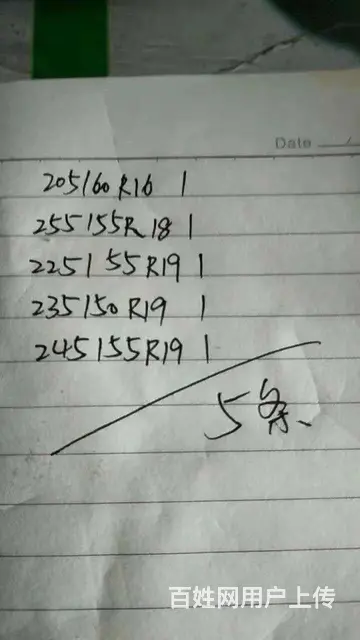 Date
205/60R16 1
255/55R18 1
225/55R19 1
235/50R19 1
245/55R19 1
5条
百姓网用户上传